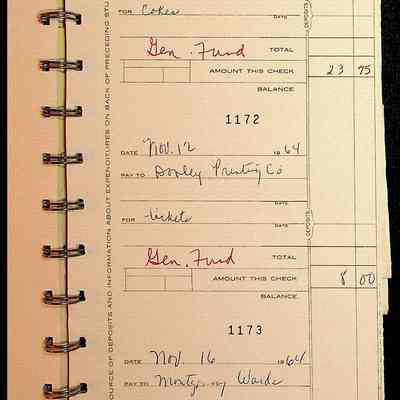 FOR Cokes
DATE
Gen. Fund TOTAL
AMOUNT THIS CHECK 23 75
BALANCE
1172
DATE Nov. 12 1964
PAY TO Dooley Printing Co
DATE
FOR tickets
DATE
Gen. Fund TOTAL
AMOUNT THIS CHECK 8 00
BALANCE
1173
DATE Nov. 16 1964
PAY TO Montgomery Wards
DEPOSITS
DEPOSITS
OURCE OF DEPOSITS AND INFORMATION ABOUT EXPENDITURES ON BACK OF PRECEDING STU